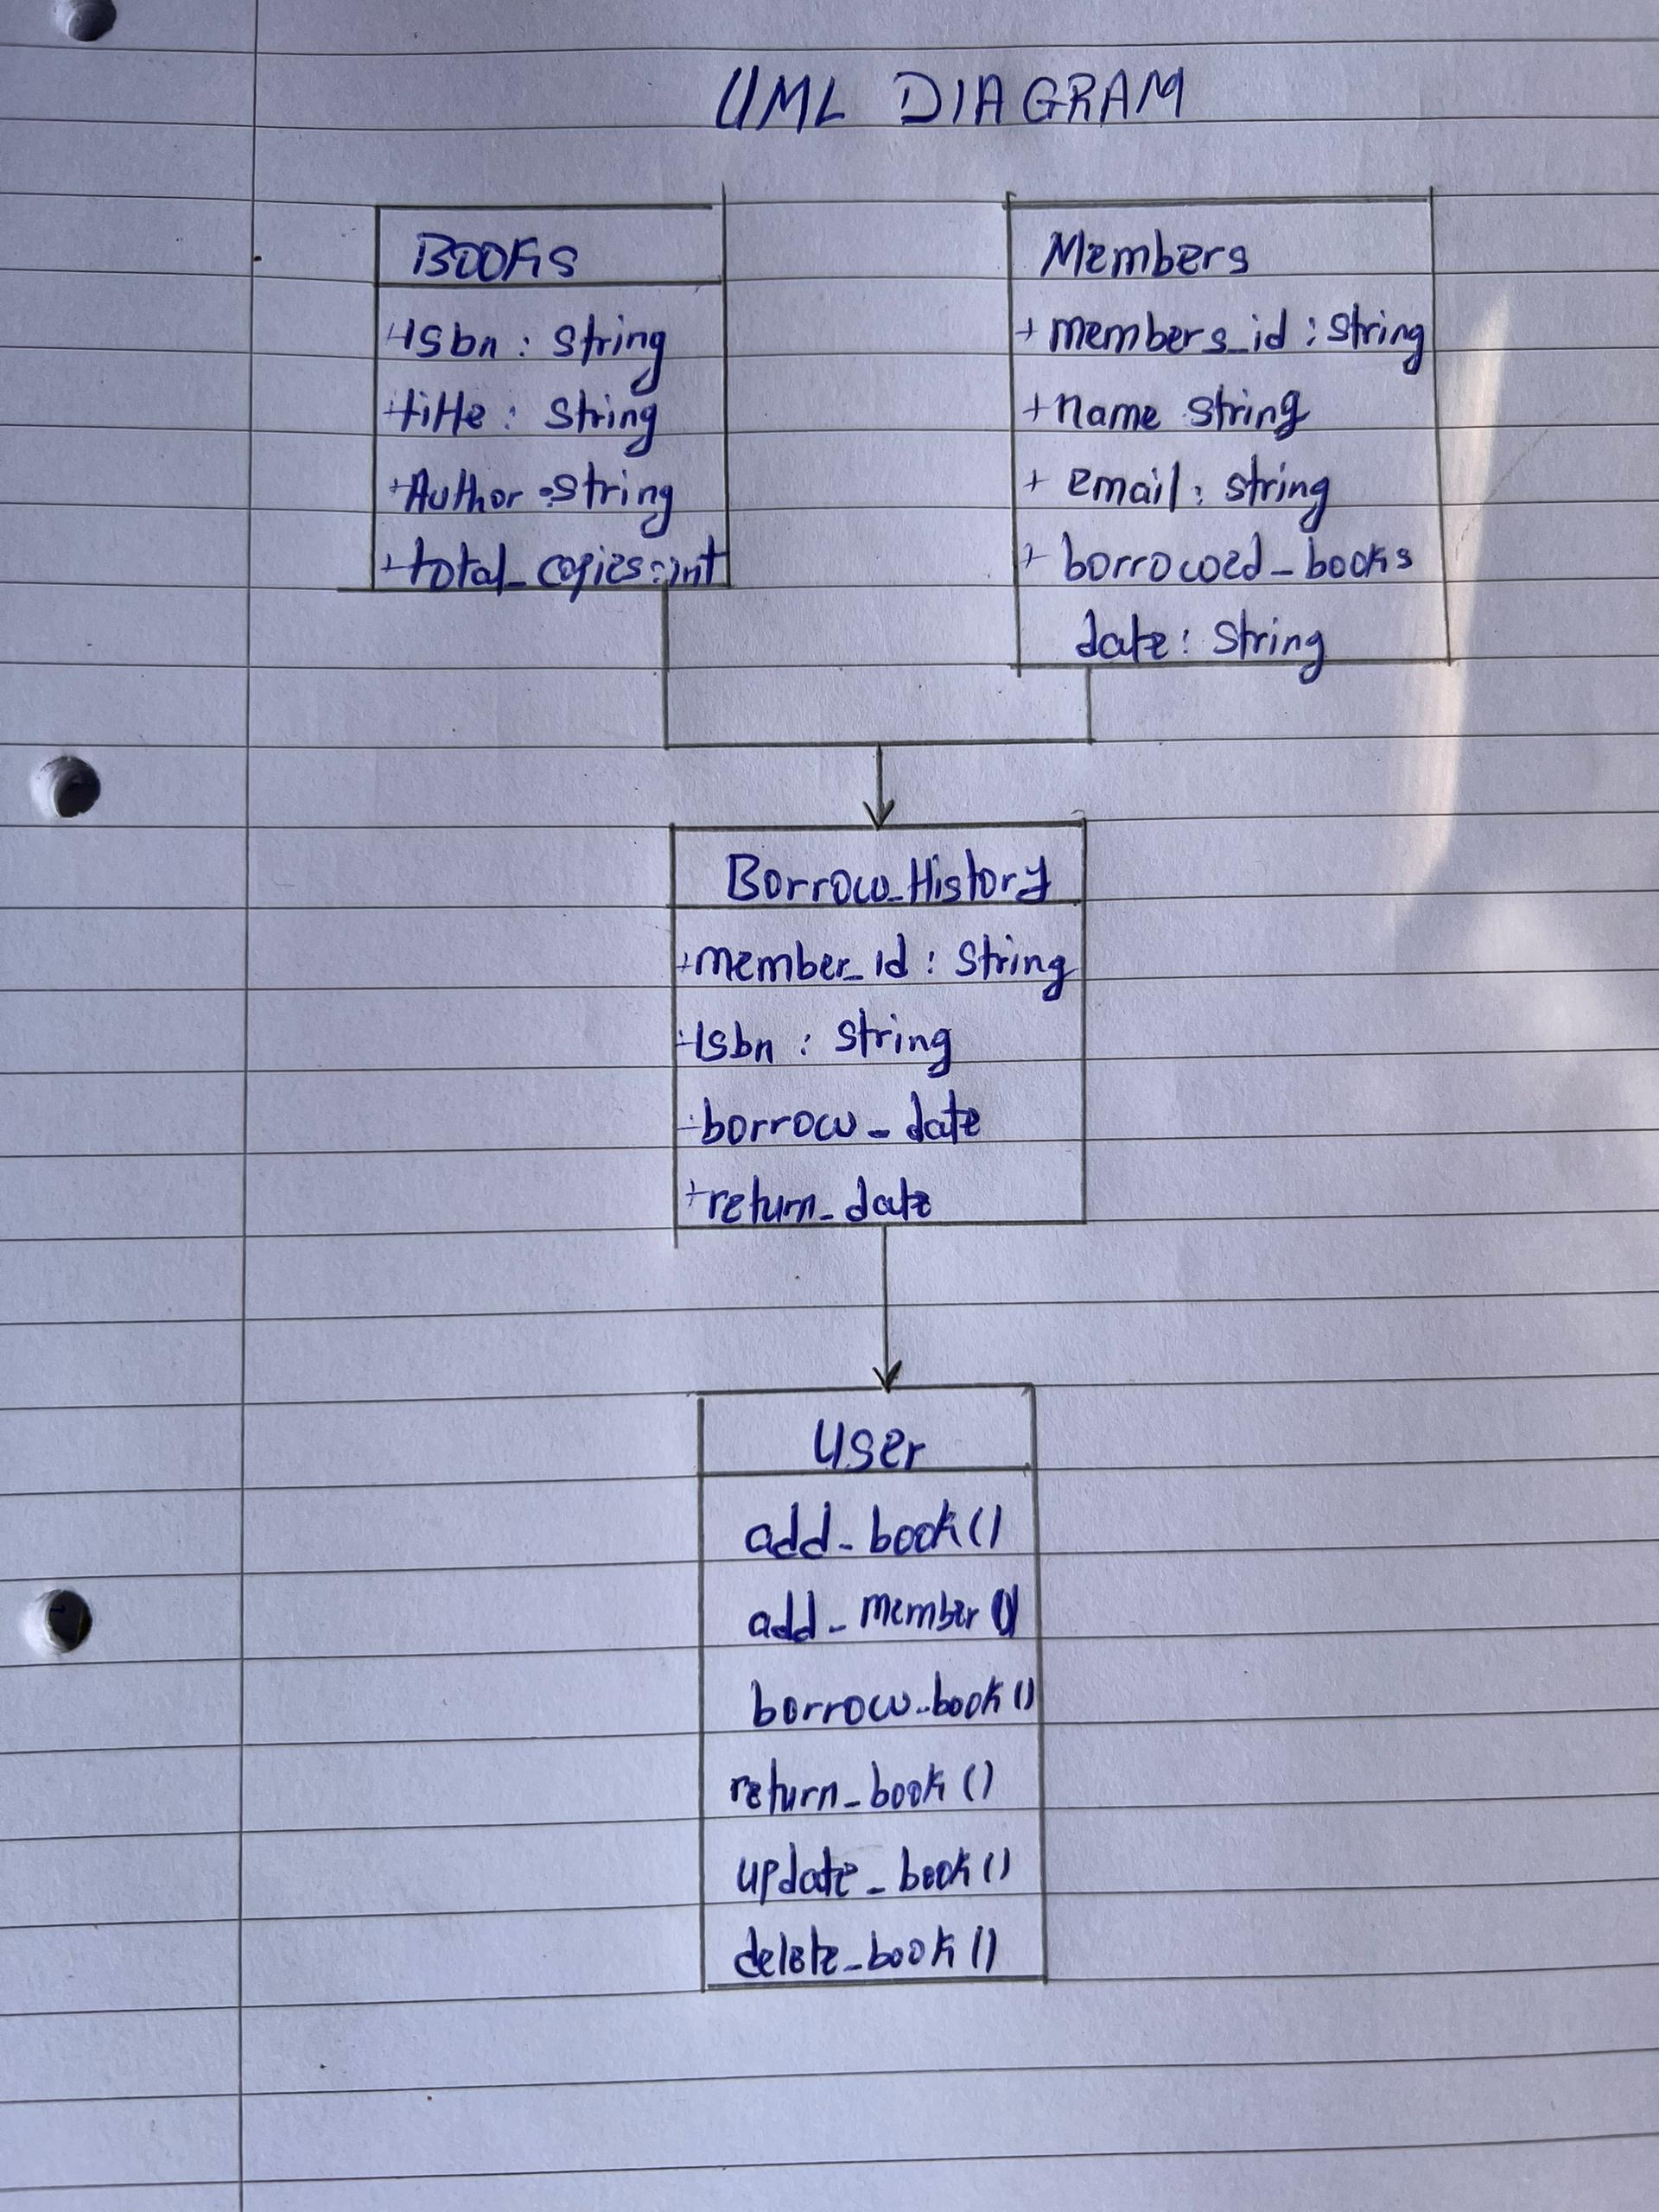 UML DIAGRAM
Books
+Isbn : String
+title : String
+Author : String
+total_copies : int
Members
+ members_id : String
+ name String
+ email : string
+ borrowed_books
date : String
Borrow_History
+member_id : String
+Isbn : String
+borrow_date
+return_date
User
add_book()
add_member()
borrow_book()
return_book()
update_book()
delete_book()